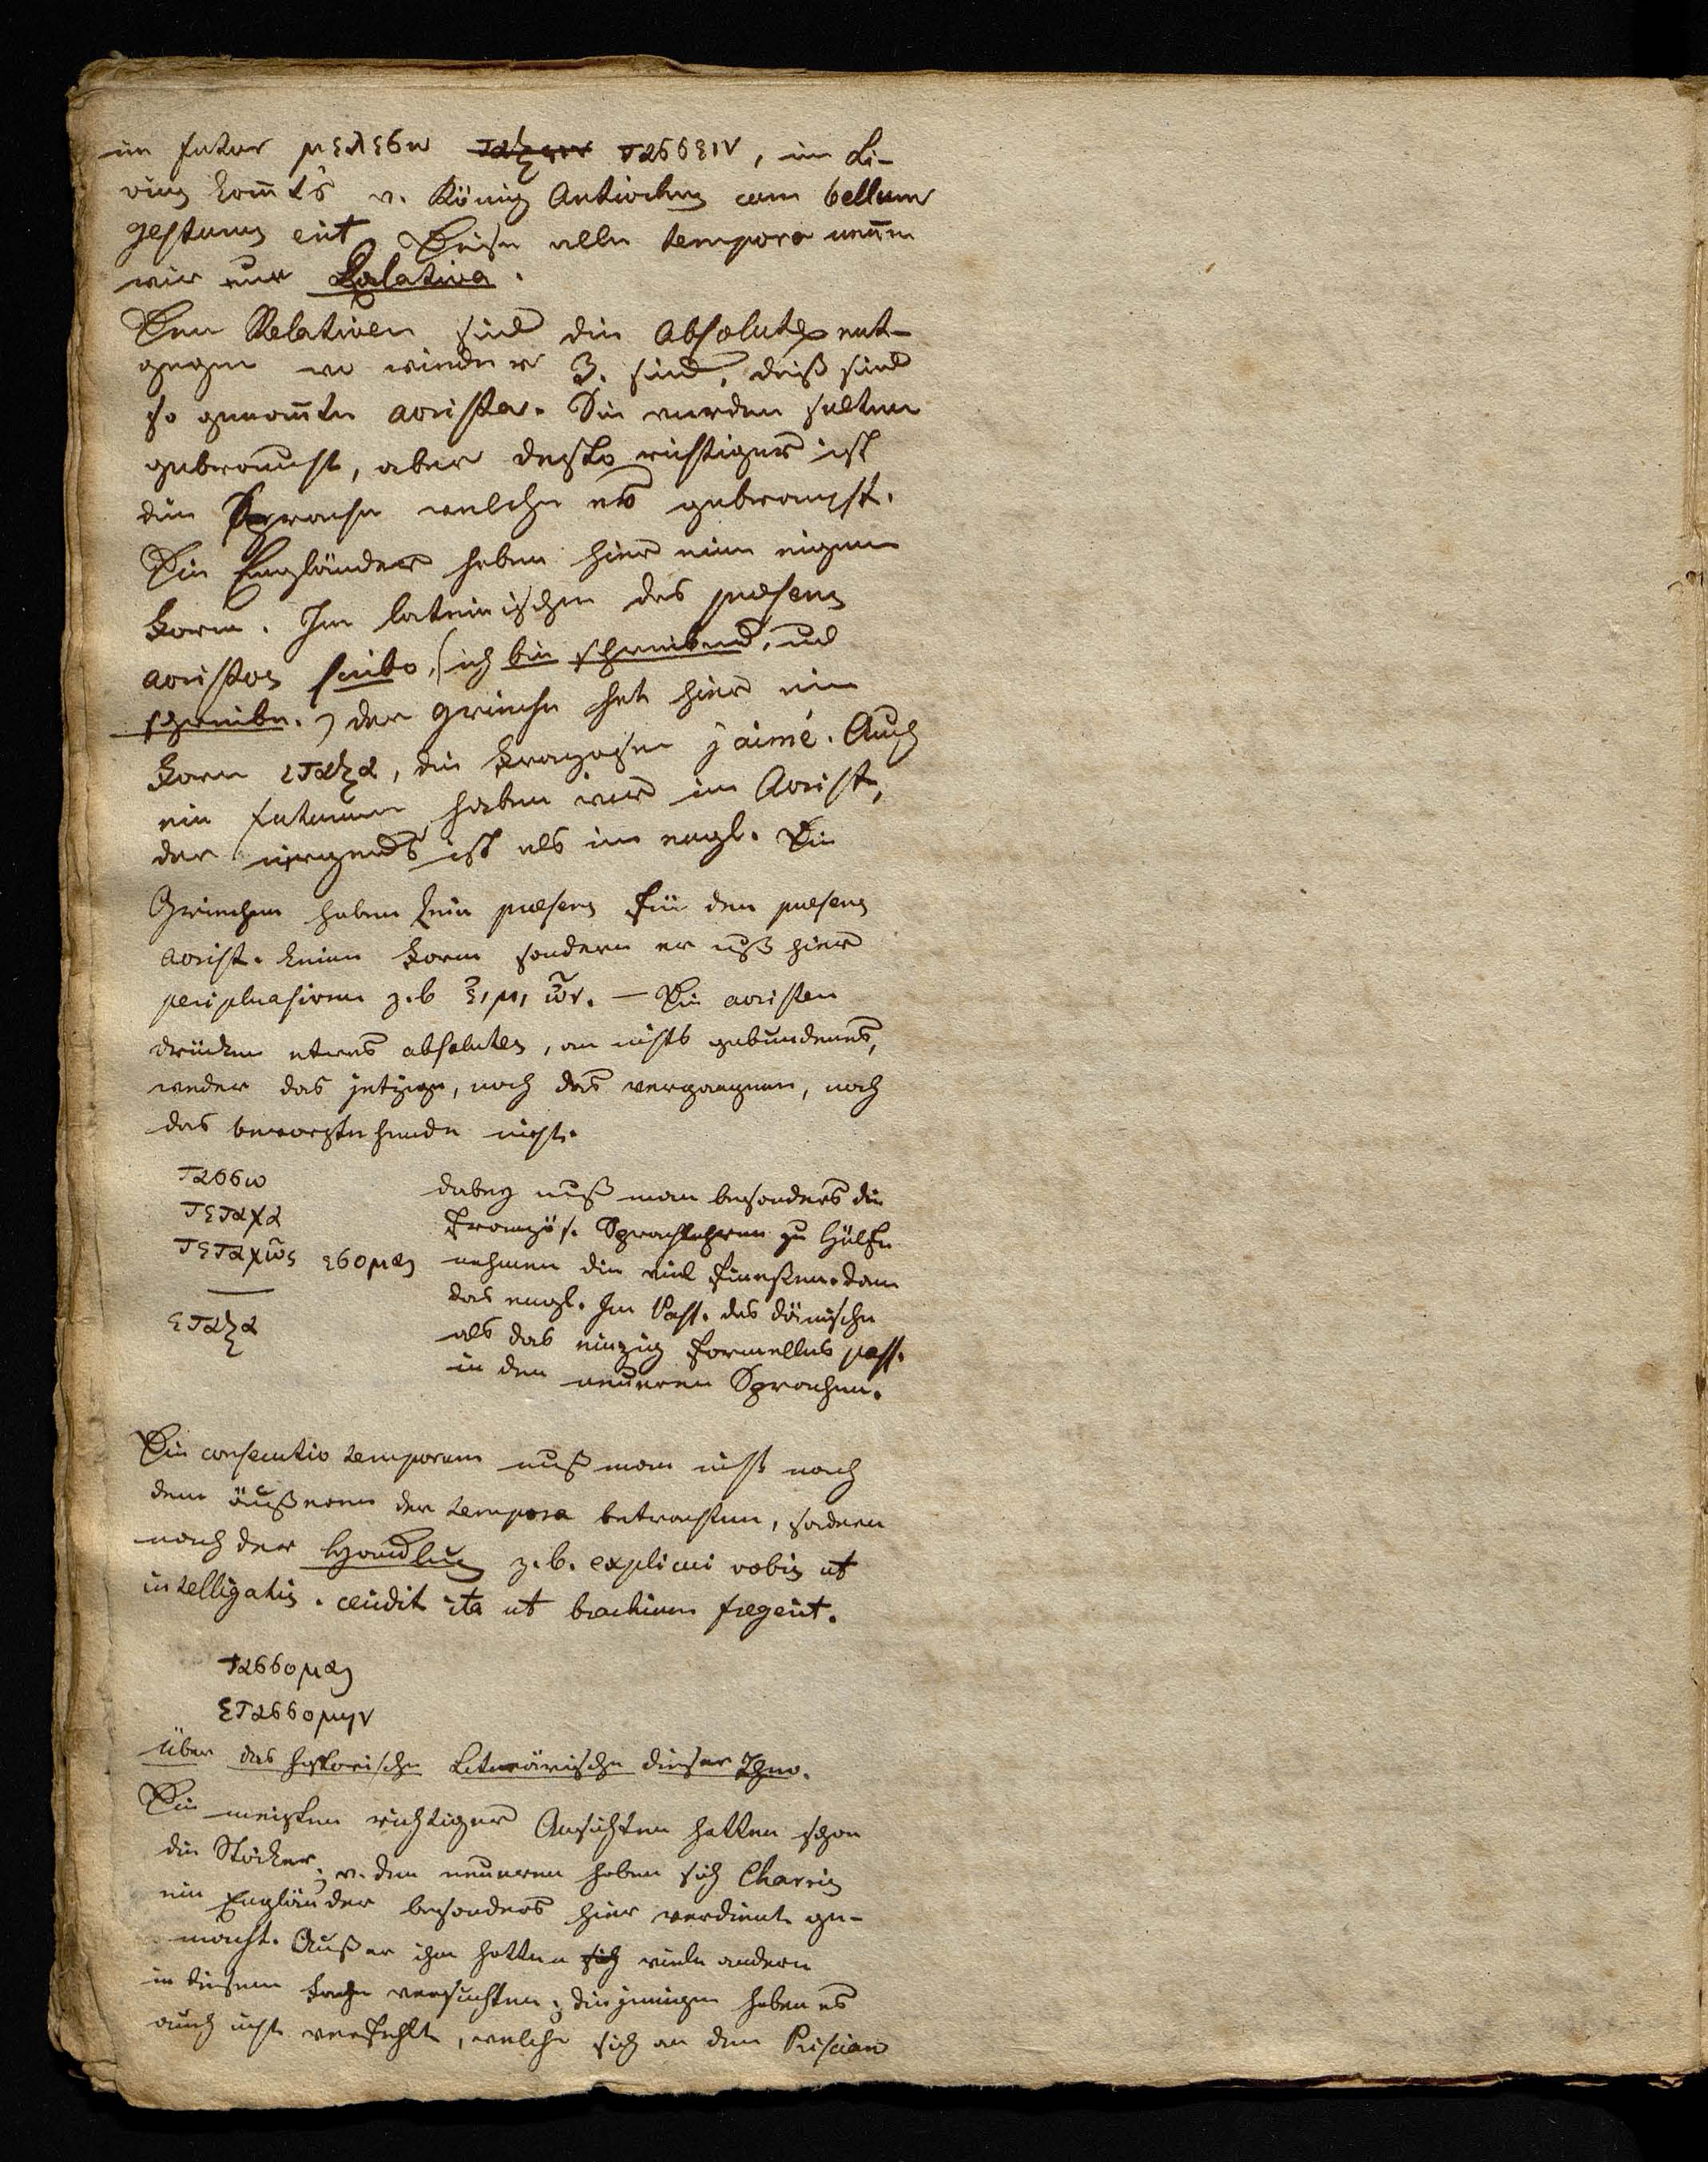 im futur μελεσω ταξειν τασσειν, im Li-
vius komt's v. König Antiochus cum bellum
gesturus erit. Diese alle tempora nenen
wir nun Relativa.
Den Relativen sind die Absolute ent-
gegen wo wieder 3. sind, diß sind
so genante aorister. Sie werden selten
gebraucht, aber desto richtiger ist
die Sprache welche es gebraucht.
Die Engländer haben hier eine eigene
Form. Im lateinischen das præsens
aoristos scribo, (ich bin schreibend, und
schreibe.) der Grieche hat hier eine
Form εταξα, die Franzosen j'aimé. Auch
ein futurum haben wir im Aorist,
der nirgends ist als im engl. Die
Griechen haben kein præsens für den præsens
aorist. keine Form sondern er muß hier
periphrasiren z.b ειμι ων. — Die aoristen
drücken etwas absolutes, an nichts gebundenes,
weder das jetzige, noch das vergangene, noch
das bevorstehende nicht.
τασσω
τεταχα
τεταχως εσομαι
εταξα
dabey muß man besonders die
französ. Sprachlehren zu Hülfe
nehmen die viel finessen. dann
das engl. Im Pass. das dänische
als das einzig formelles pass.
in den neueren Sprachen.
Die consecutio temporum muß man nicht nach
dem äußeren der tempora betrachten, sondern
nach der Handlung z.b. explicui vobis ut
intelligatis. cecidit ita ut brachium fregerit.
τασσομαι
ετασσομην
Über das historische Literärische dieser
Die meisten richtiger Ansichten hatten schon
die Stoiker; v. den neueren haben sich Charris
ein Engländer besonders hier verdient ge-
macht. Außer ihm hatten sich viele andern
in diesem Fache versuchten; diejenigen haben es
auch nicht verfehlt, welche sich an den Priscian